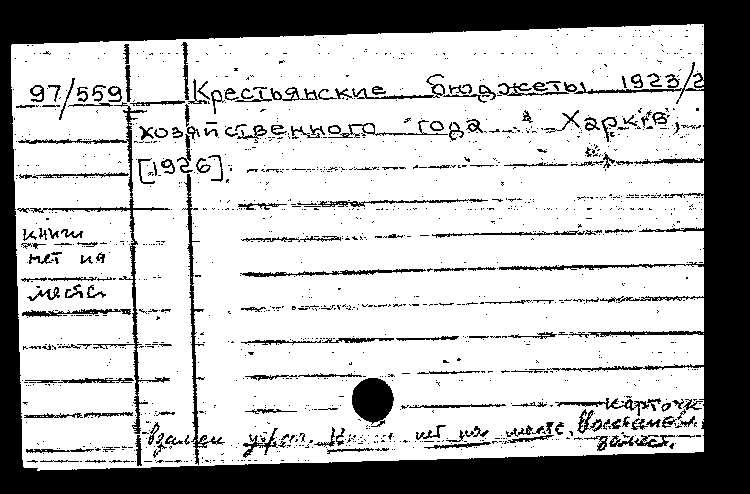 97/559 Крестьянские бюджеты 1923/2
хозяйственного года Харків,
[1926].
книги
нет на
месте
карточк
Взамен утрач. Книги нет на месте. Восстановл.
замест.